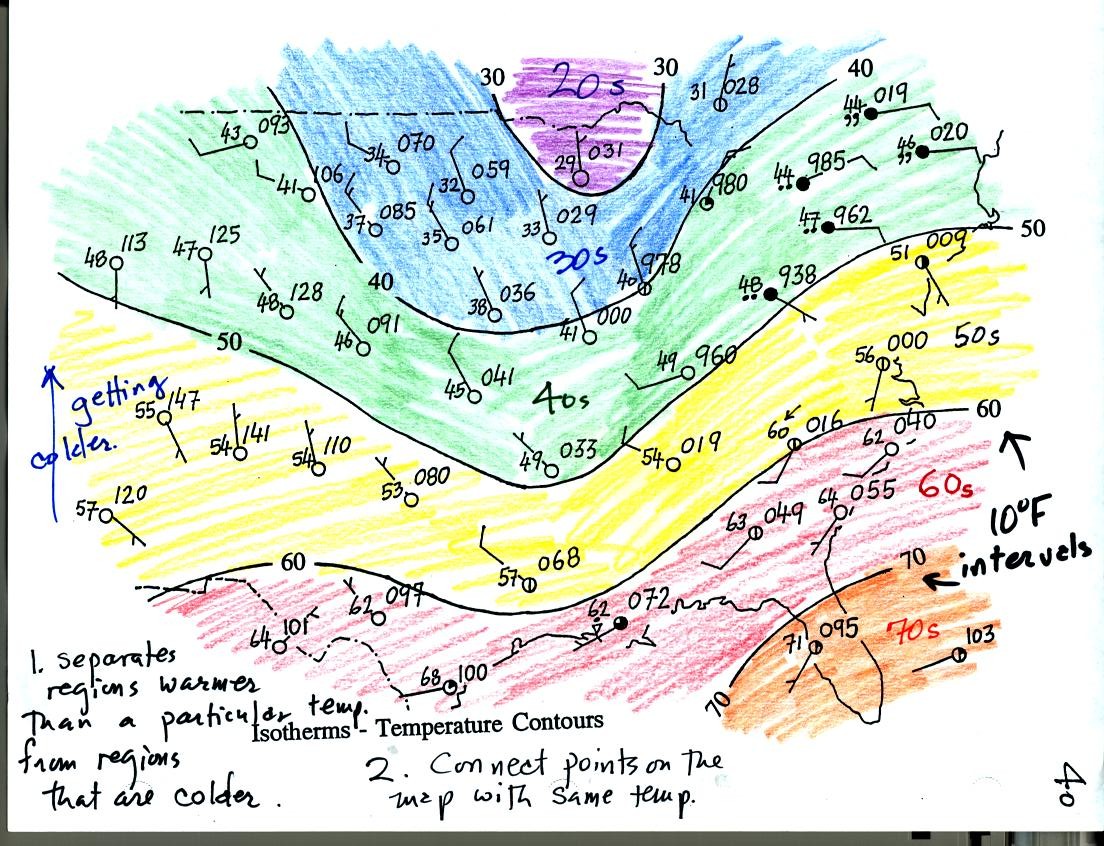 30
20s
30
31 028
40
44 019
,,
43 093
46 020
,,
34 070
29 031
106
41
32 059
44 985
41 980
37 085
35 061
33 029
47 962
50
113
48
47 125
30s
51 009
40
40 978
48 938
48 128
38 036
41 000
50
46 091
49 960
56 000
50s
getting
colder.
45 041
40s
55 147
60
60 016
62 040
54 141
54 110
49 033
54 019
53 080
60s
64 055
57 120
63 049
10°F
intervals
60
57 068
70
62 097
62 072
64 101
71 095
70s
103
68 100
70
1. separates
regions warmer
than a particular temp.
from regions
that are colder.
Isotherms - Temperature Contours
2. Connect points on the
map with same temp.
40